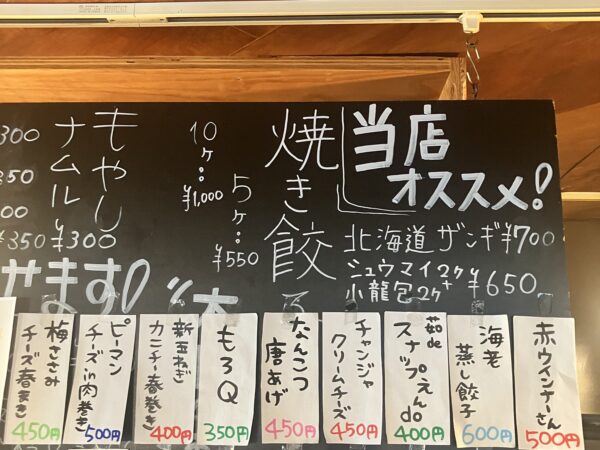 当店
オススメ!
北海道ザンギ¥700
シュウマイ2ケ+
小龍包2ケ
¥650
焼き餃
5ケ:
¥550
10ケ:
¥1,000
もやし
ナムル
¥300
300
350
¥350
せます!
赤ウインナーさん
500円
海老
蒸し餃子
600円
茹de
スナップえんdo
400円
チャンジャ
クリームチーズ
450円
なんこつ
唐あげ
450円
もろQ
350円
新玉ねぎ
カニチー春巻き
400円
ピーマン
チーズin肉巻き
500円
梅ささみ
チーズ春まき
450円